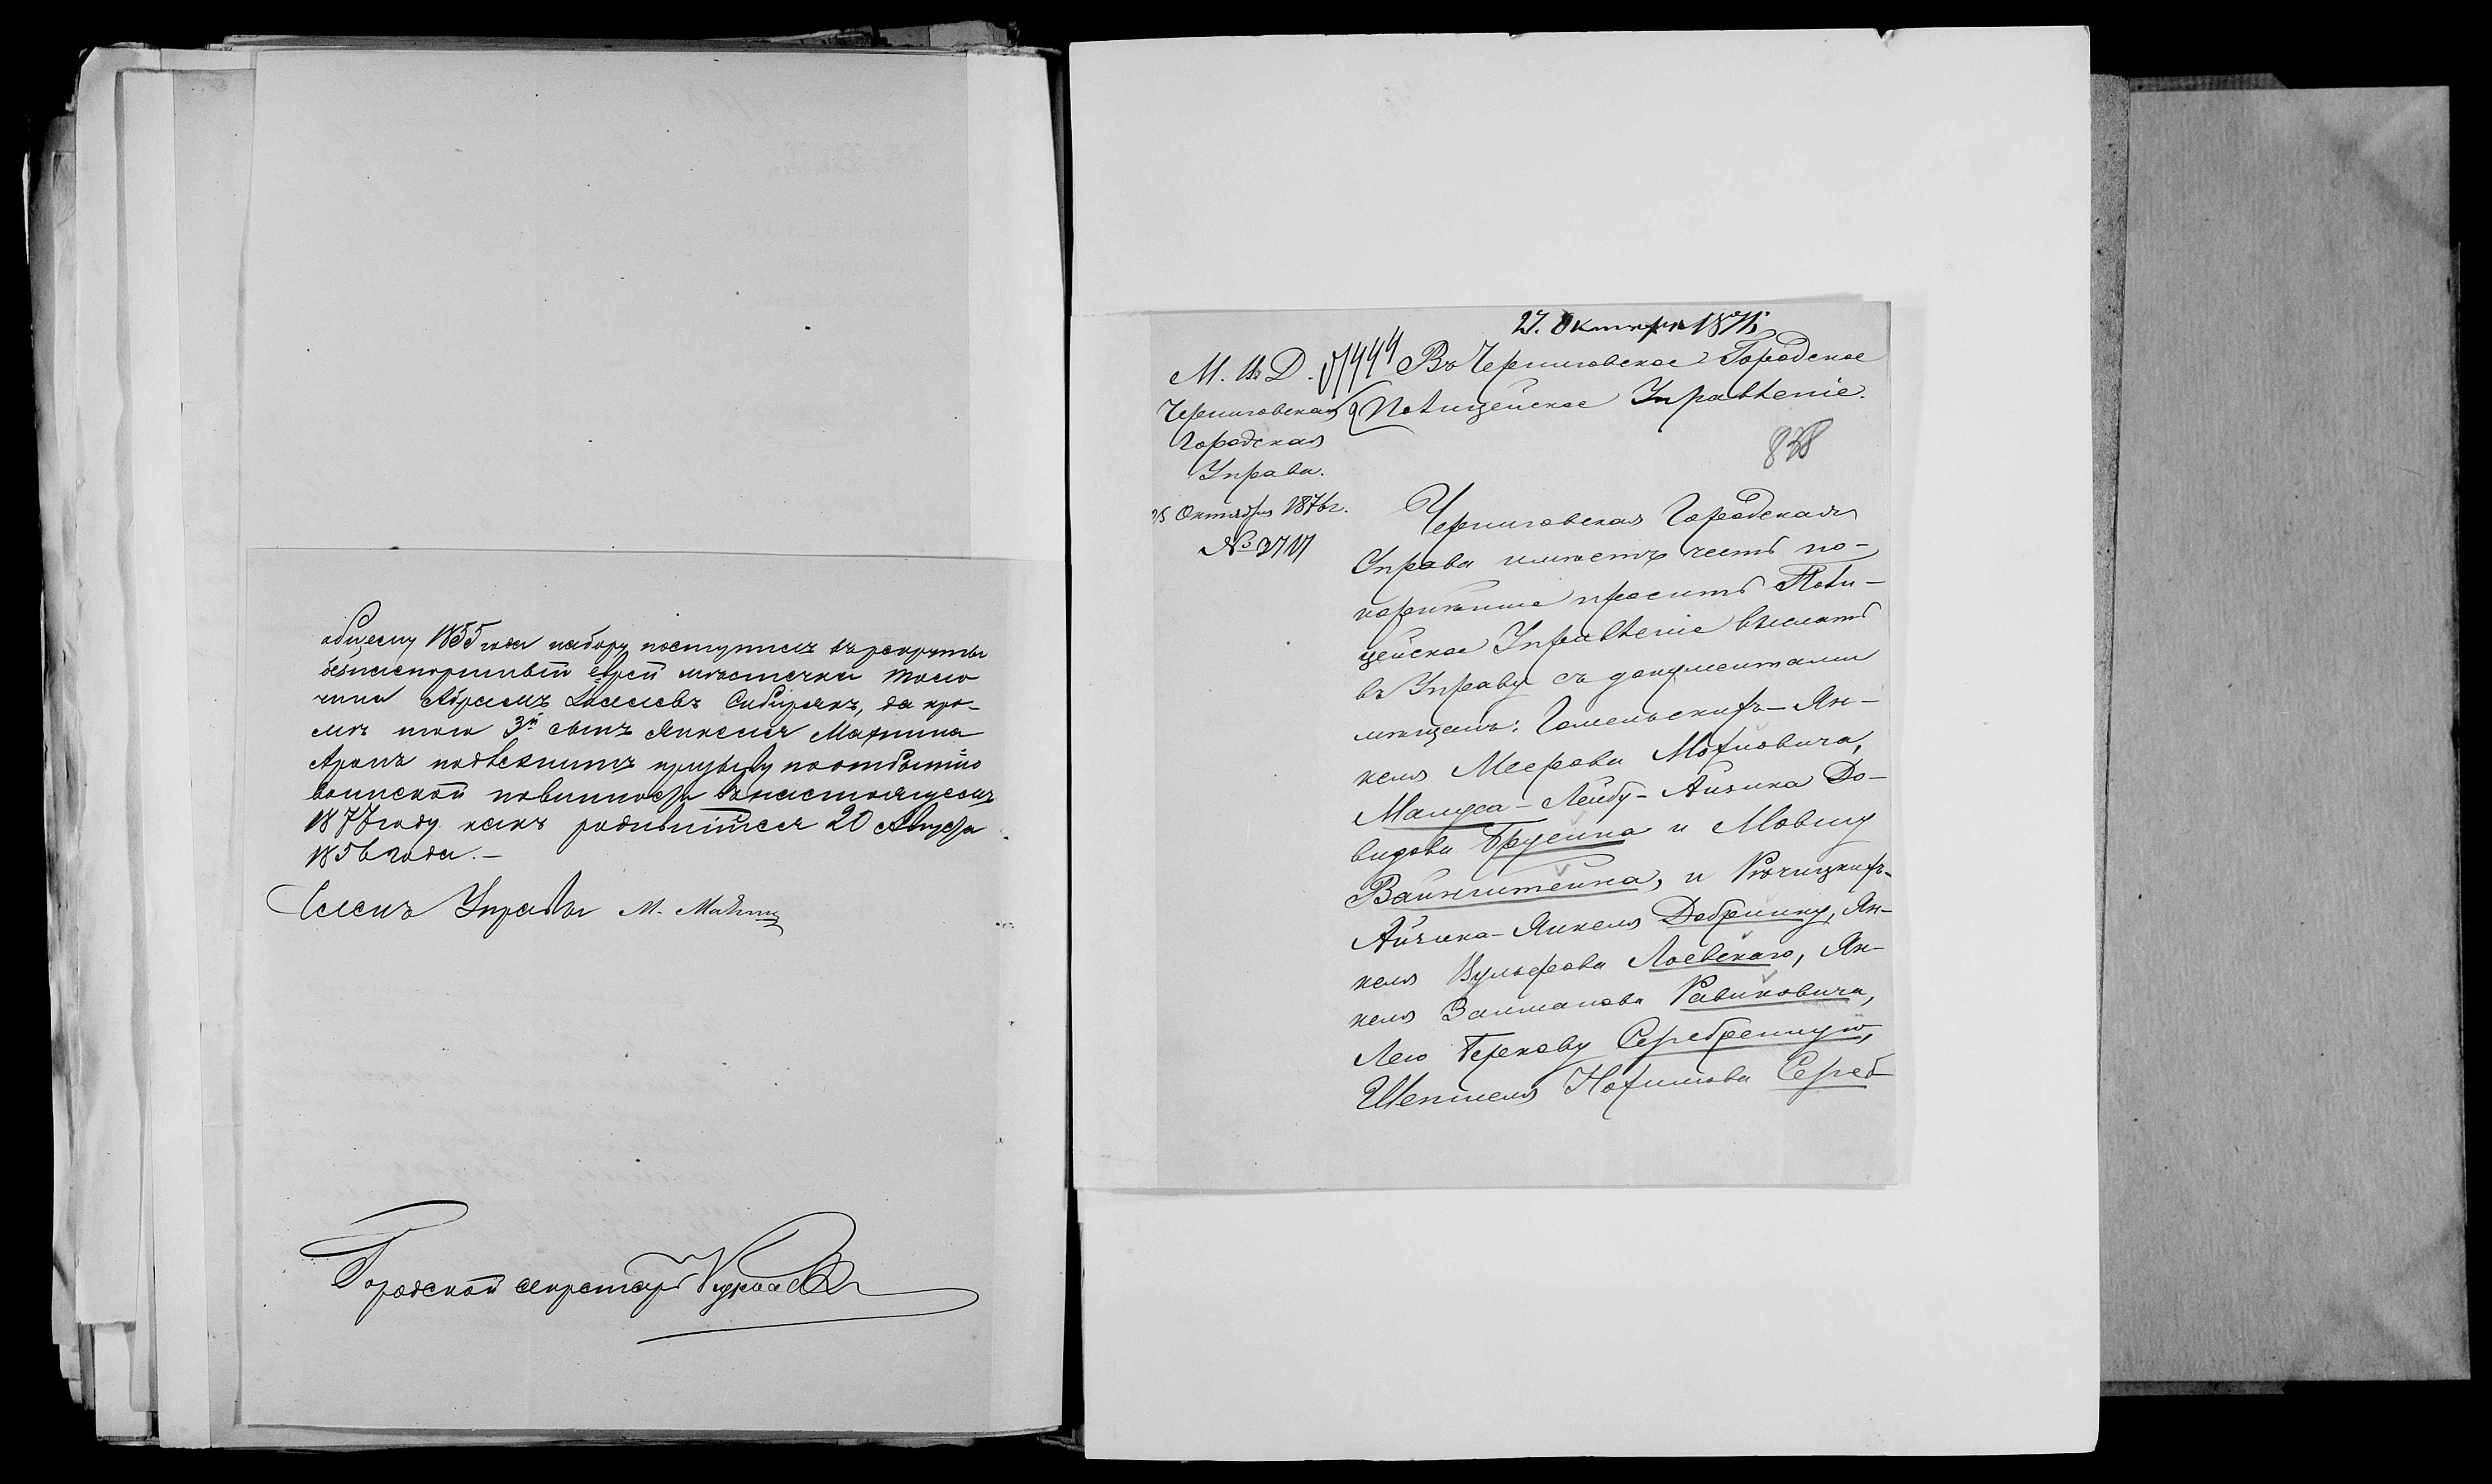 общему 1855 года набору поступилъ въ рекруты
безпаспортный еврей мѣстечка Толо
чина Абрамъ Сибирякъ, да кро-
мѣ того 3й сынъ Янкеля Малкина
Аронъ подлежитъ призыву по отбытію
воинской повинности въ настоящемъ
1877 году какъ родившійся 20 Августа
1856 года.-
Членъ Управы М. Малкин
Городской секретарь
27. Октября 1876
М. В. Д.
Черниговская
Городская
Управа.
25 Октября 1876 г.
№ 3717
Въ Черниговское Городское
Полицейское Управленіе.
838
Черниговская Городская
Управа имѣетъ честь по-
корнѣйше просить Поли-
цейское Управленіе выслать
въ Управу съ документами
мѣщанъ: Гомельскихъ - Ян-
келя Меерова
Лейбу-Айзика До-
видова Брусина и Мовшу
Вайнштейна, и Рѣчицкихъ-
Айзика-Янкеля Добринину, Ян-
келя Вульфова Лоевскаго, Ян-
келя Залманова Равиковича,
Лею Беркову Серебренную,
Шепшеля Нохимова Сереб-